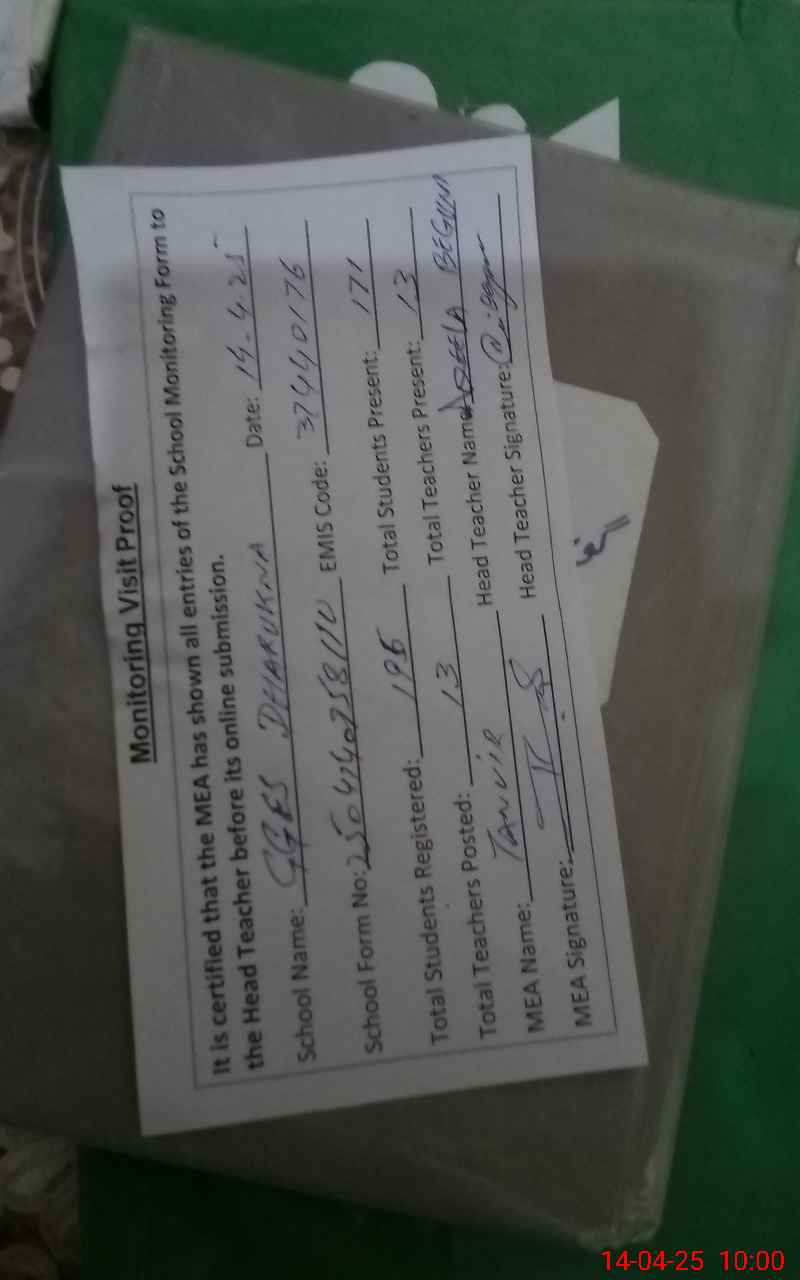 Monitoring Visit Proof
It is certified that the MEA has shown all entries of the School Monitoring Form to
the Head Teacher before its online submission.
School Name: GGES DHARUKNA Date: 14-4-25
School Form No: EMIS Code: 37440176
Total Students Registered: 196 Total Students Present: 171
Total Teachers Posted: 13 Total Teachers Present: 13
MEA Name: TANVIR Head Teacher Name: BEGUM
MEA Signature: Head Teacher Signature:
14-04-25 10:00